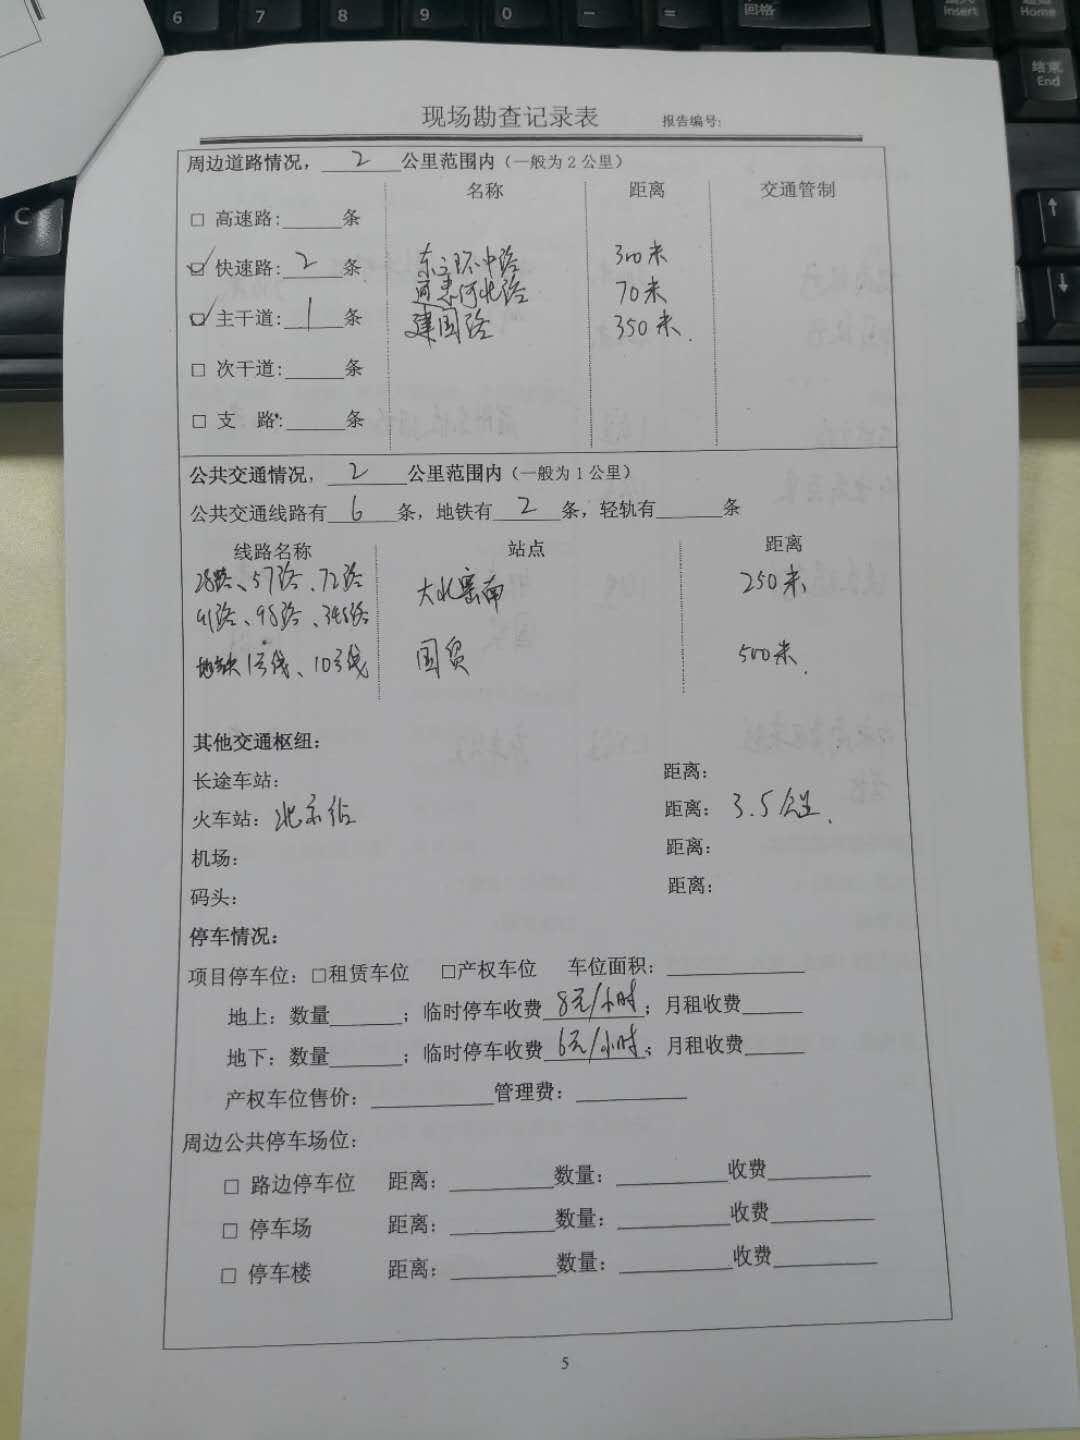 6 7 8 9 0 - = 回格
Insert Home
结束
End
C
现场勘查记录表 报告编号:
周边道路情况，2公里范围内（一般为2公里）
名称 距离 交通管制
□ 高速路:______条
☑ 快速路:2条 东三环中路 300米
通惠河北路 70米
☑ 主干道:1条 建国路 350米.
□ 次干道:______条
□ 支 路:______条
公共交通情况，2公里范围内（一般为1公里）
公共交通线路有6条，地铁有2条，轻轨有______条
线路名称 站点 距离
28路、57路、72路 大北窑南 250米
91路、98路、348路
地铁1号线、10号线 国贸 500米.
其他交通枢纽：
长途车站： 距离：
火车站：北京站 距离：3.5公里.
机场： 距离：
码头： 距离：
停车情况：
项目停车位：□租赁车位 □产权车位 车位面积：____________
地上：数量______；临时停车收费8元/小时；月租收费_____
地下：数量______；临时停车收费6元/小时；月租收费_____
产权车位售价：__________管理费：__________
周边公共停车场位：
□ 路边停车位 距离：_________数量：__________收费_________
□ 停车场 距离：_________数量：__________收费_________
□ 停车楼 距离：_________数量：__________收费_________
5